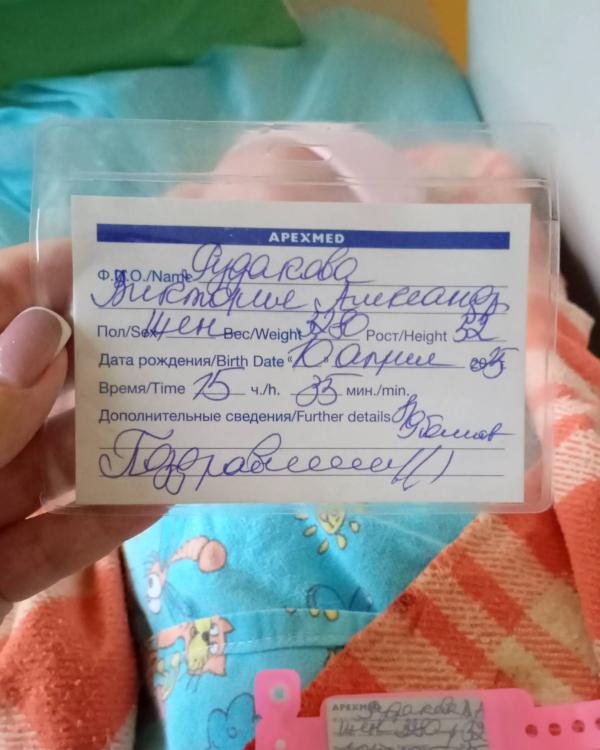 APEXMED
Ф.И.О./Name Рудакова
Виктория Александр
Пол/Sex жен Вес/Weight 3280 Рост/Height 52
Дата рождения/Birth Date "10" апреля 2025
Время/Time 15 ч./h. 35 мин./min.
Дополнительные сведения/Further details
Поздравляем!!!
APEXMED
жен